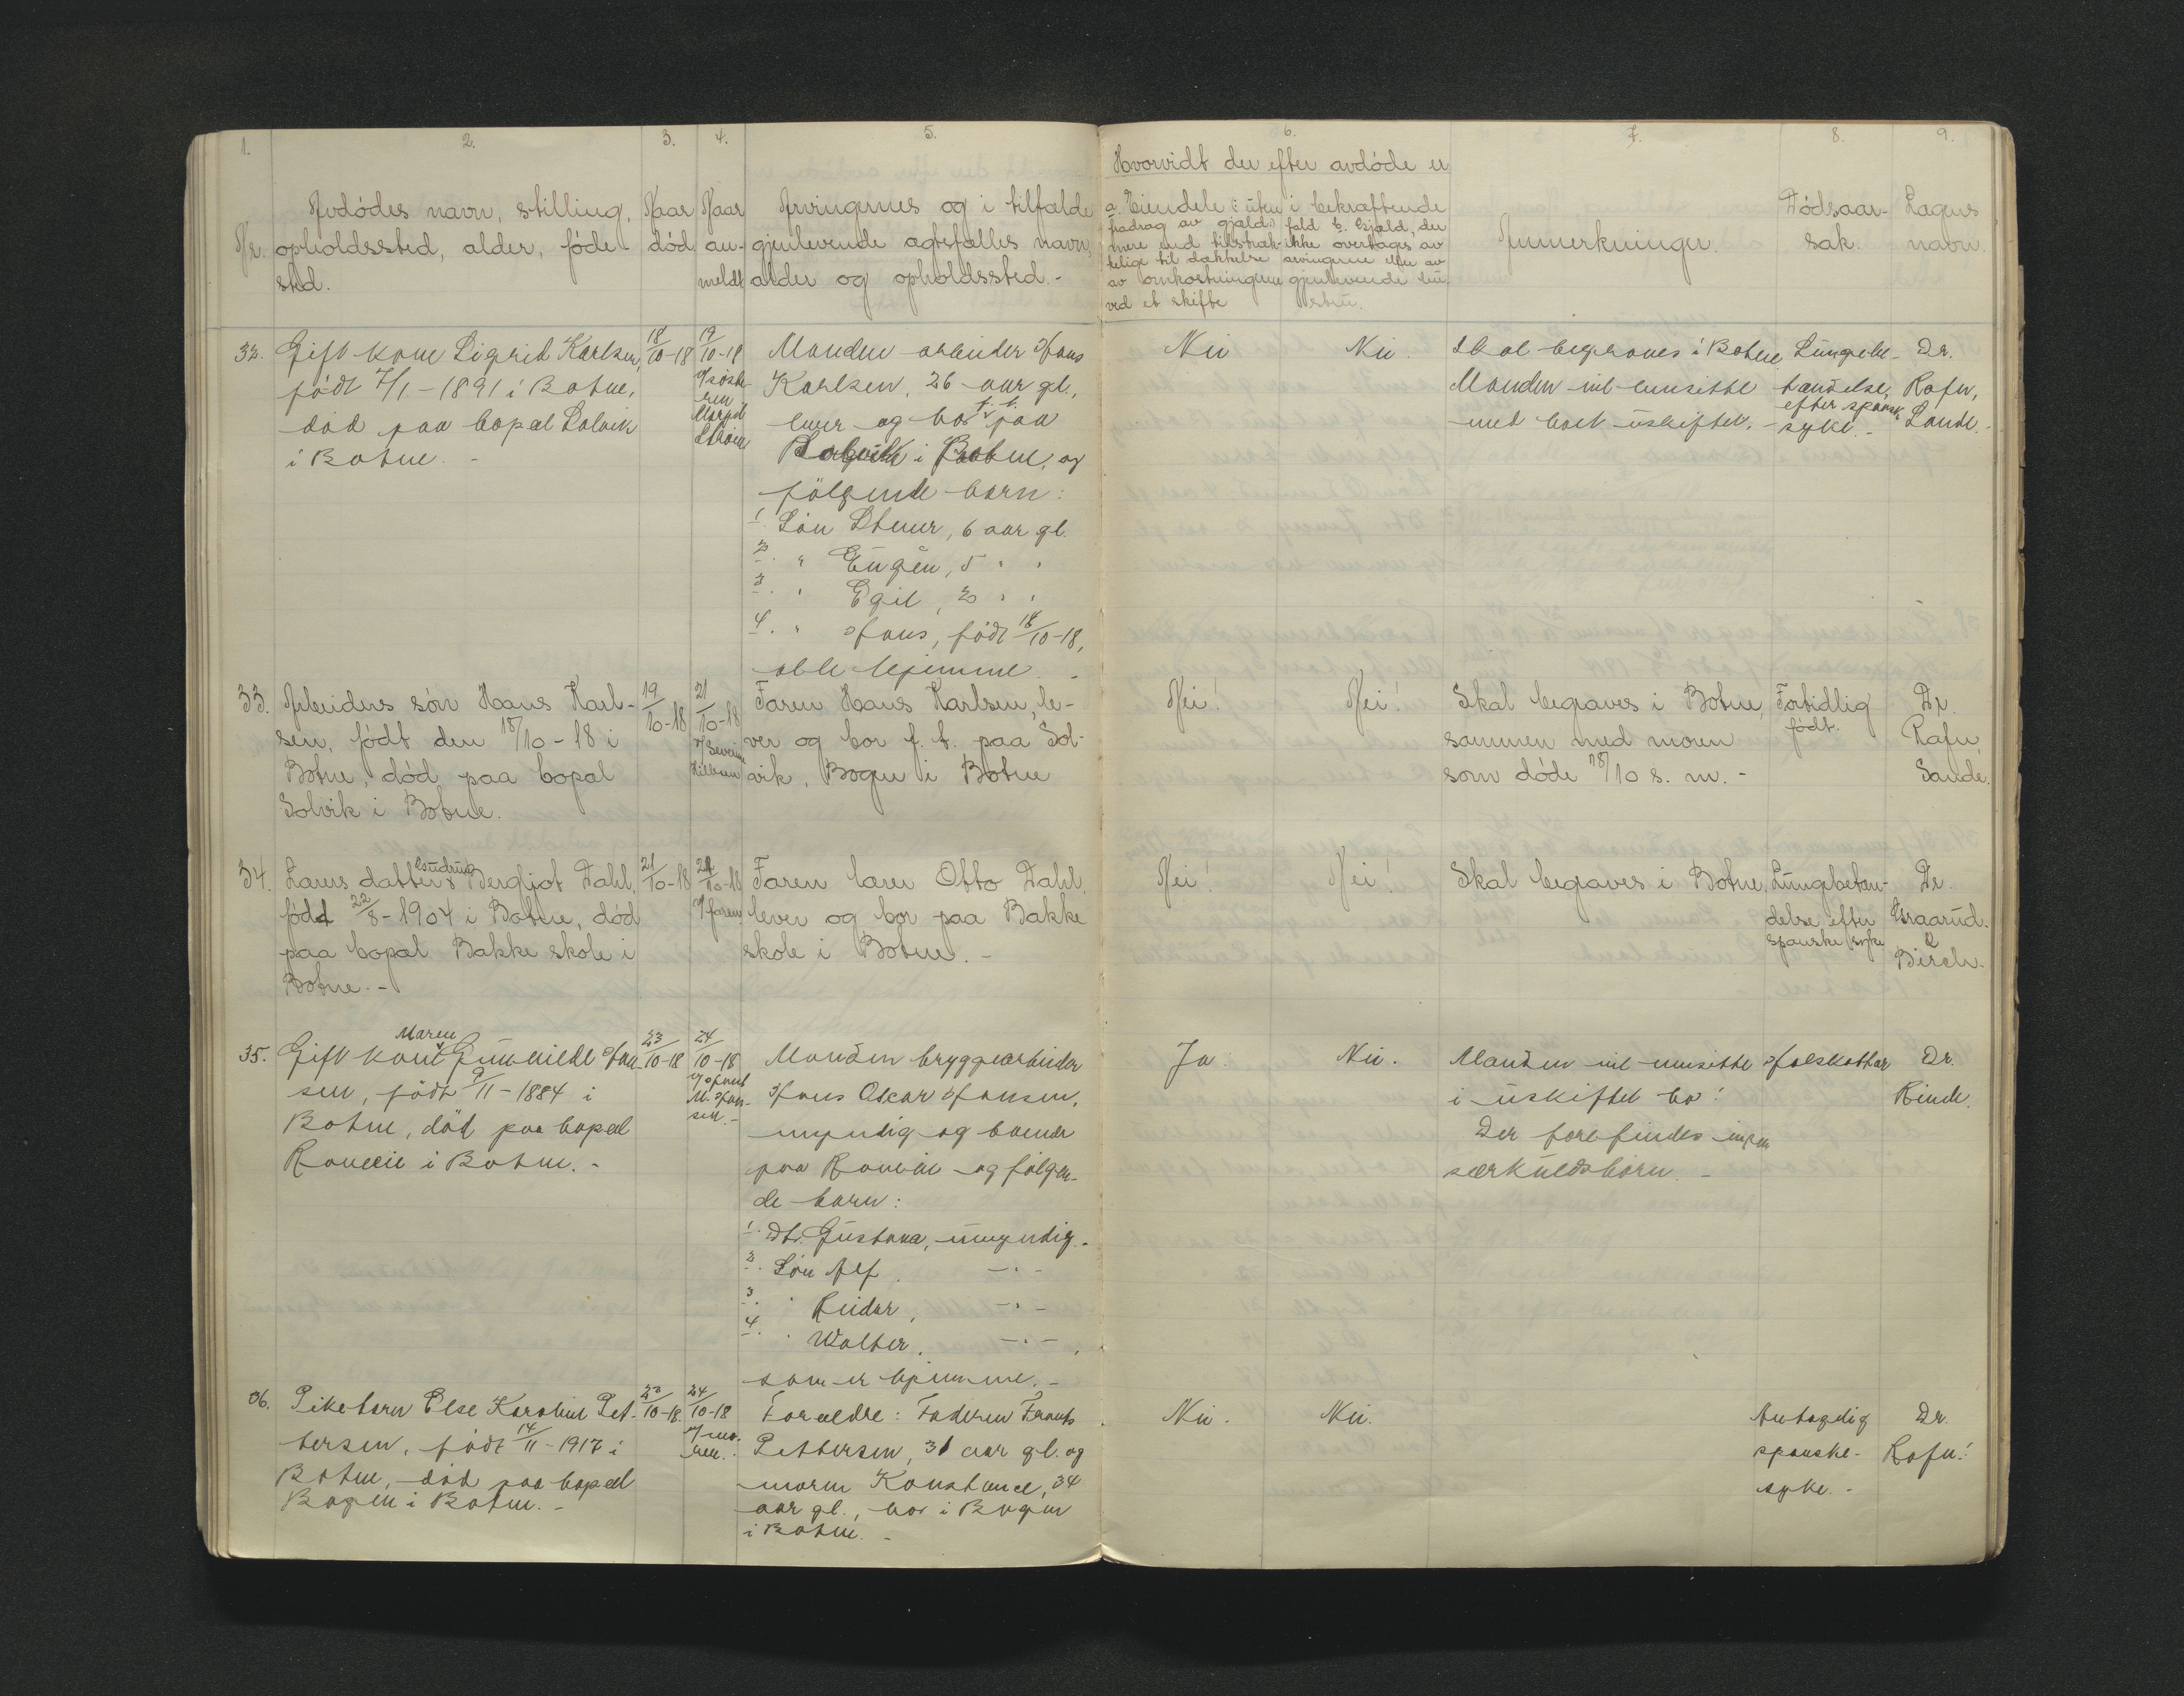 1.
2.
3.
4.
5.
6.
7.
8.
9.
Nr.
Avdødes navn, stilling,
opholdssted, alder, føde-
sted.
Naar
død
Naar
an-
meldt
Arvingernes og i tilfælde
gjenlevende egtefælles navn,
alder og opholdssted.-
Hvorvidt der efter avdøde er
a. Eiendele (: uten
fradrag av gjæld:)
mere end tilstræk-
kelige til dækkelse
av omkostningerne
ved et skifte
i bekræftende
fald b. Gjæld, der
ikke overtages av
arvingerne eller av
gjenlevende
Anmerkninger.
Dødsaar-
sak.
Lægens
navn.
32.
Gift kone Sigrid Karlsen,
født 7/1-1891 i Botne,
død paa bopæl Solvik
i Botne.-
18/10-18
19/10-18
v/søste-
ren
Margit
Manden arbeider Hans
Karlsen, 26 aar gl.,
lever og bor f.t. paa
Solvik i Botne, og
følgende barn:
1. Søn Steinar, 6 aar gl.
2. " Eugen, 5 " "
3. " Egil, 2 " "
4. " Hans, født 18/10-18,
alle hjemme.-
Nei
Nei.
Skal begraves i Botne
Manden vil hensitte
med boet uskiftet.-
Lungebe-
tændelse,
efter spansk
syke.-
Dr.
Rafn,
Sande.
33.
Arbeiders søn Hans Karl-
sen, født den 18/10-18 i
Botne, død paa bopæl
Solvik i Botne.
19/10-18
21/10-18
v/Severin
Faren Hans Karlsen, le-
ver og bor f.t. paa Sol-
vik, Bogen i Botne
Nei!
Nei!
Skal begraves i Botne,
sammen med moren
som døde 18/10 s.m.-
Fortidlig
født.
Dr.
Rafn,
Sande.
34.
Lærers datter Gudrun Bergljot Dahl,
født 22/8-1904 i Botne, død
paa bopæl Bakke skole i
Botne.-
21/10-18
21/10-18
v/faren
Faren lærer Otto Dahl,
lever og bor paa Bakke
skole i Botne.-
Nei!
Nei!
Skal begraves i Botne.
Lungebetæn-
delse efter
spanske syke
Dr.
Graarud.
&
Birch.
35.
Gift kone Maren Gunhilde Han-
sen, født 9/11-1884 i
Botne, død paa bopæl
i Botne.-
23/10-18
24/10-18
M. Han-
sen.-
Manden bryggearbeider
Hans Oskar Hansen,
myndig og boende
paa og følgen-
de barn:
1. Dtr. Gustava, umyndig.
2. Søn Alf, -"-
3. " Reidar, -"-
4. " Walter, -"-,
som er hjemme.-
Ja.
Nei.
Manden vil hensitte
i uskiftet bo!
Der forefindes ingen
særkuldsbørn.-
Halskatar
Dr.
Rinde.
36.
Pikebarn Else Karoline Pet-
tersen, født 14/11-1917 i
Botne, død paa bopæl
Bogen i Botne.-
23/10-18
24/10-18
v/mo-
ren.
Forældre: Faderen Frants
Pettersen, 31 aar gl. og
moren Konstance, 34
aar gl., bor i Bogen
i Botne.-
Nei.
Nei.
Antagelig
spanske-
syke.-
Dr.
Rafn!